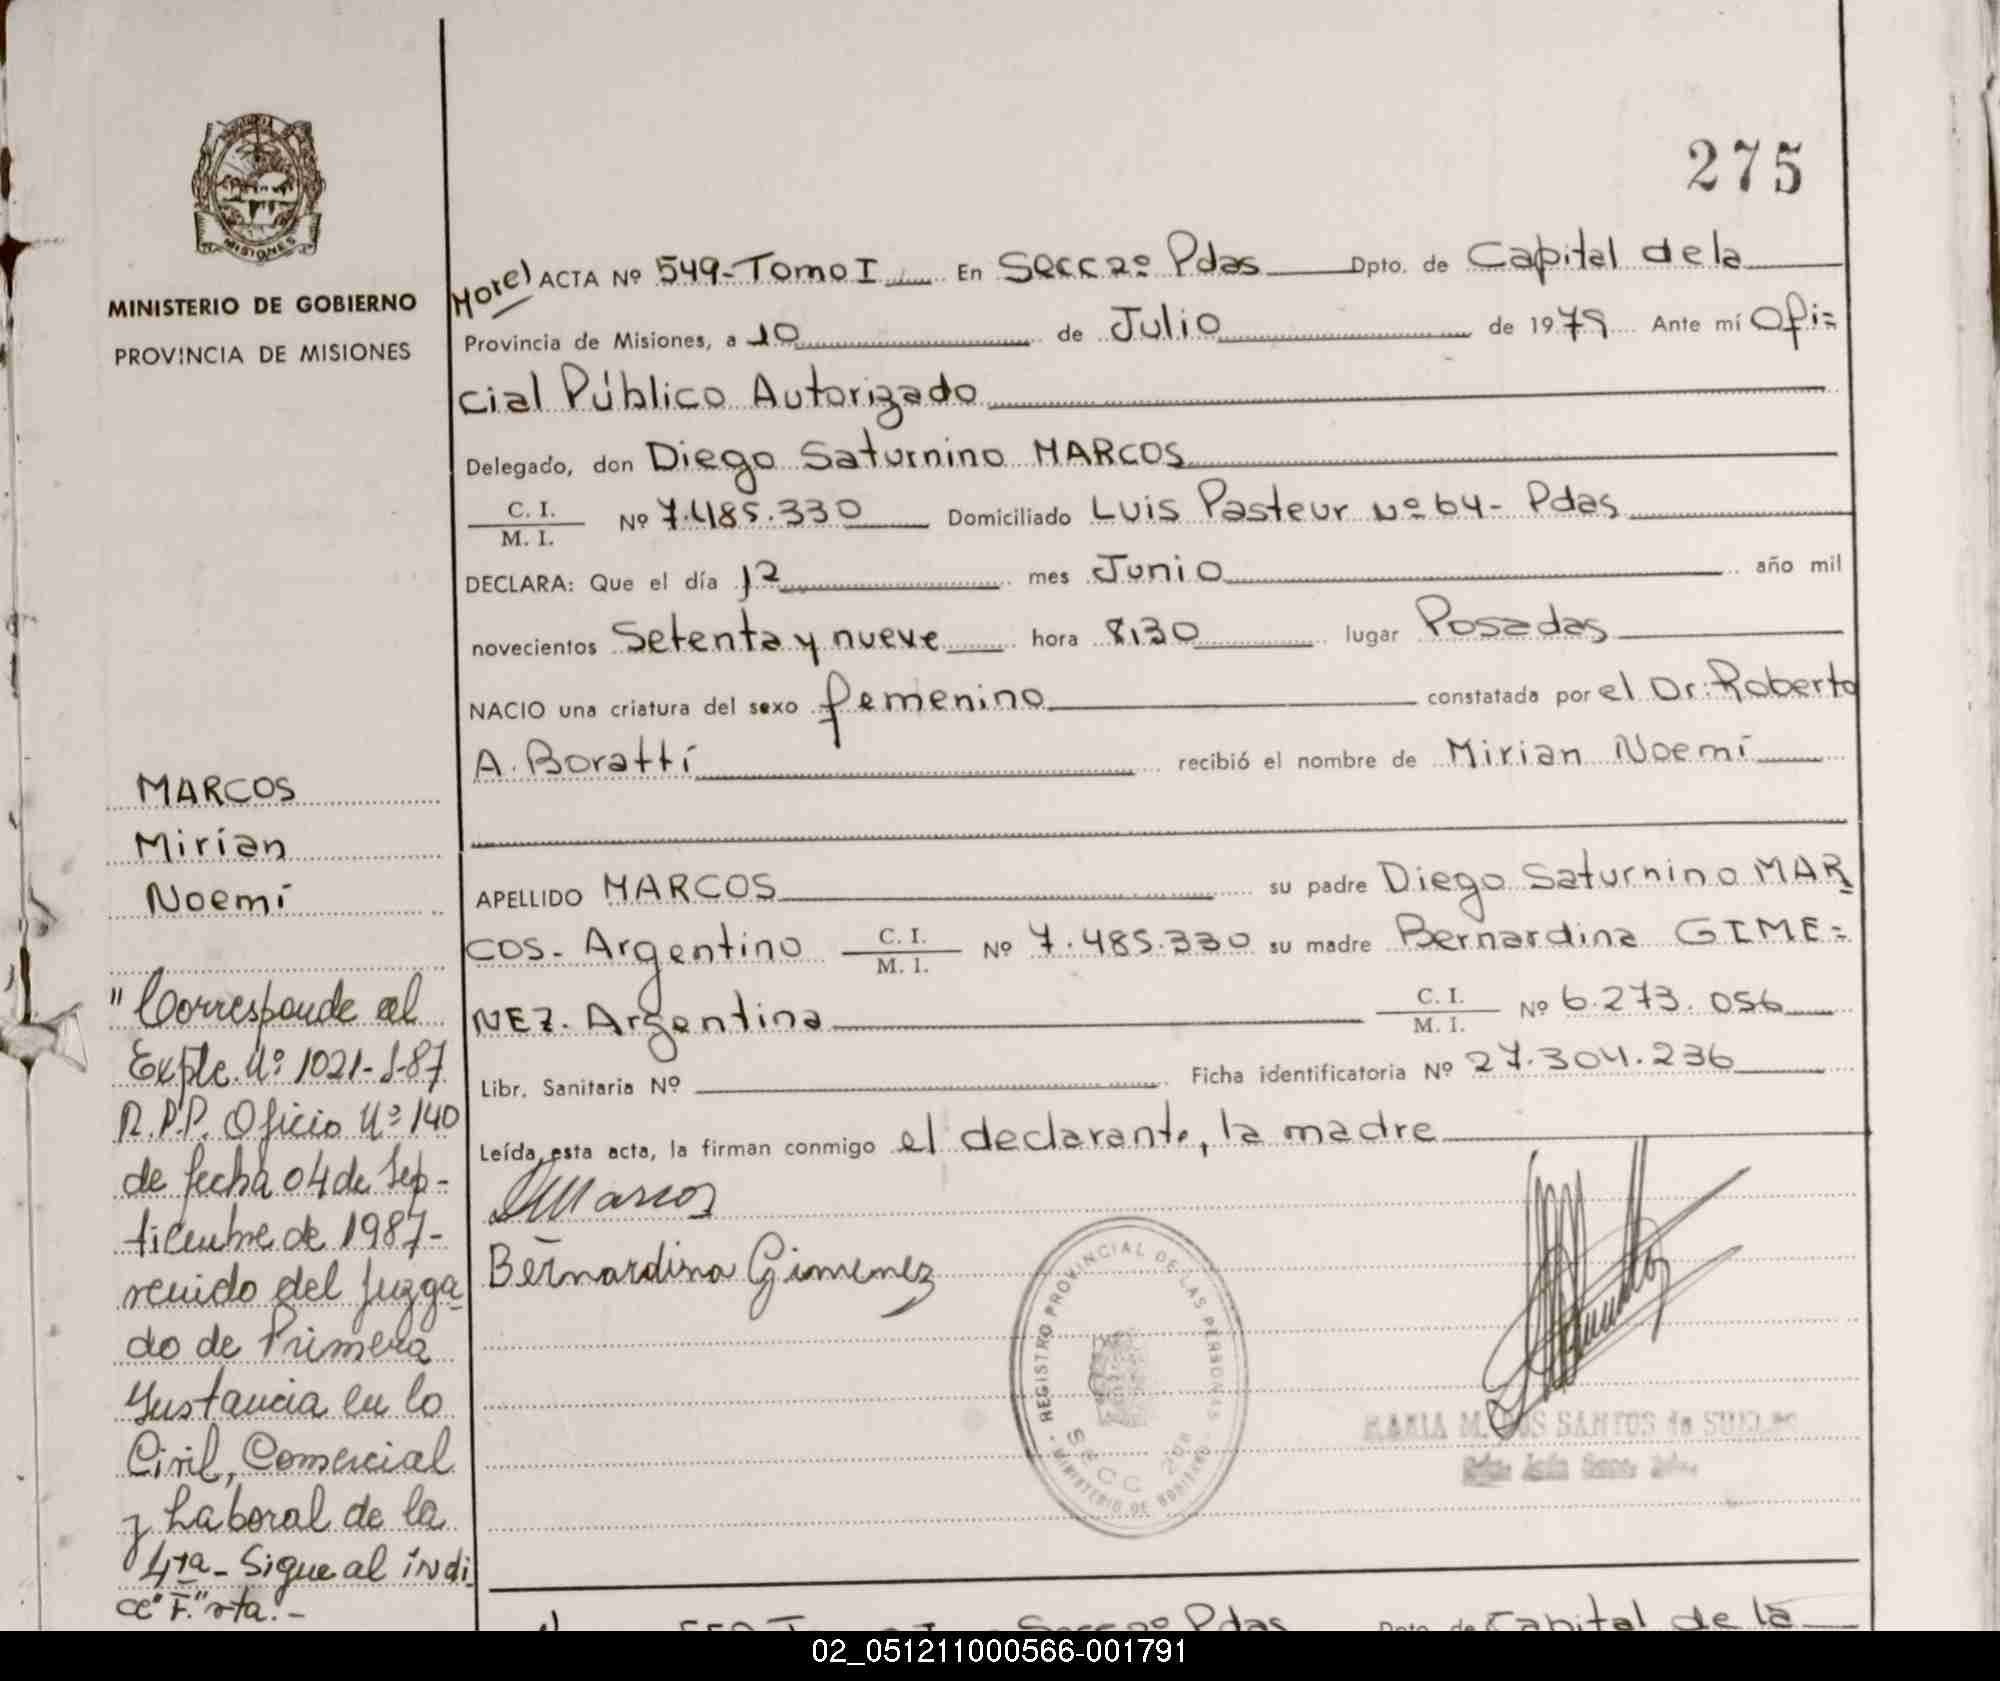 275
MISIONES
MINISTERIO DE GOBIERNO
PROVINCIA DE MISIONES
MARCOS
Mirian
Noemí
"Corresponde al
Expte. Nº 1021-S-87
R.P.P. Oficio Nº 140
de fecha 04 de Sep-
tiembre de 1987-
venido del Juzga-
do de Primera
Instancia en lo
Civil, Comercial
y Laboral de la
4ta- Sigue al indi
ce "F." vta.-
ACTA Nº 549-Tomo I En Secc 2º Pdas Dpto. de Capital de la
Provincia de Misiones, a 10 de Julio de 1979 Ante mí Ofi=
cial Público Autorizado
Delegado, don Diego Saturnino MARCOS
C. I.
M. I. Nº 7.485.330 Domiciliado Luis Pasteur Nº 64- Pdas
DECLARA: Que el día 12 mes Junio año mil
novecientos Setenta y nueve hora 8,30 lugar Posadas
NACIO una criatura del sexo femenino constatada por el Dr. Roberto
A. Boratti recibió el nombre de Mirian Noemí
APELLIDO MARCOS su padre Diego Saturnino MAR
COS- Argentino C. I. M. I. Nº 7.485.330 su madre Bernardina GIME=
NEZ- Argentina C. I. M. I. Nº 6.273.056
Libr. Sanitaria Nº Ficha identificatoria Nº 27.304.236
Leída esta acta, la firman conmigo el declarante, la madre
Marcos
Bernardina Gimenez
REGISTRO PROVINCIAL DE LAS PERSONAS
SECC 2da
MINISTERIO DE GOBIERNO
MARIA M. DOS SANTOS de
Secc 2º Pdas Dpto. de Capital de la
02_051211000566-001791